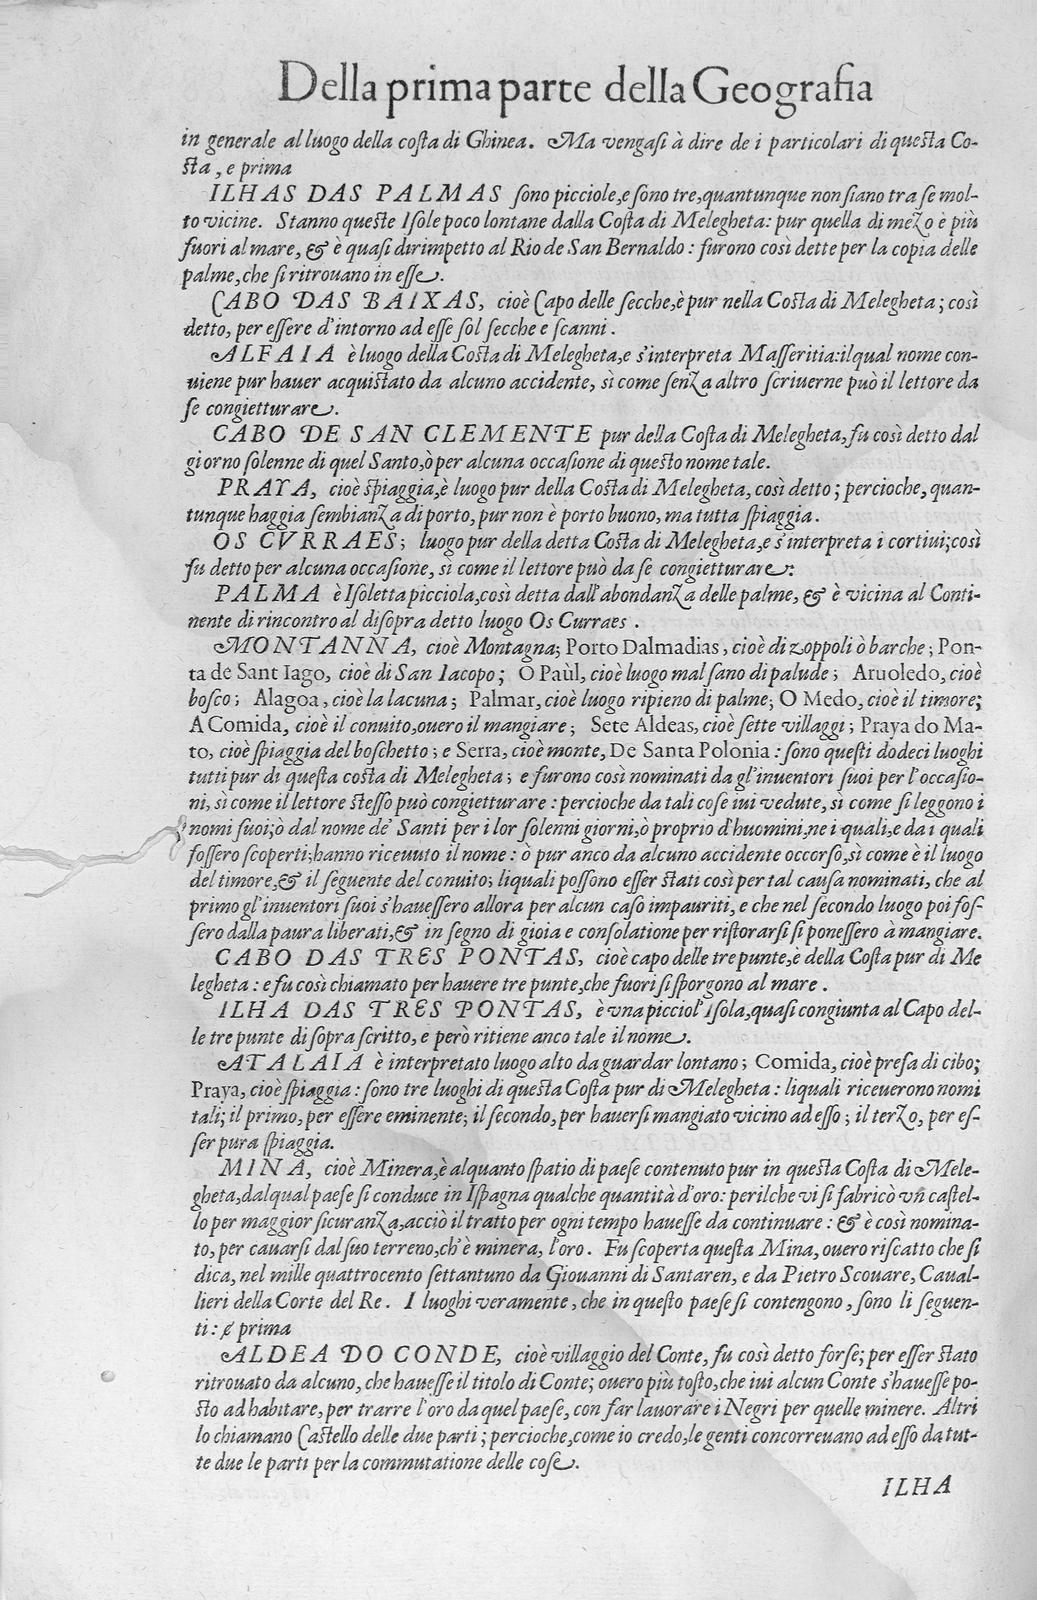 Della prima parte della Geografia
in generale al luogo della costa di Ghinea. Ma vengasi à dire de i particolari di questa Co-
sta, e prima
ILHAS DAS PALMAS sono picciole, e sono tre, quantunque non siano tra se mol-
to vicine. Stanno queste Isole poco lontane dalla Costa di Melegheta: pur quella di mezo è più
fuori al mare, & è quasi dirimpetto al Rio de San Bernaldo: furono così dette per la copia delle
palme, che si ritrouano in esse.
CABO DAS BAIXAS, cioè Capo delle secche, è pur nella Costa di Melegheta; così
detto, per essere d'intorno ad esse sol secche e scanni.
ALFAIA è luogo della Costa di Melegheta, e s'interpreta Masseritia: il qual nome con-
uiene pur hauer acquistato da alcuno accidente, sì come senz a altro scriuerne può il lettore da
se congietturare.
CABO DE SAN CLEMENTE pur della Costa di Melegheta, fu così detto dal
giorno solenne di quel Santo, ò per alcuna occasione di questo nome tale.
PRAYA, cioè spiaggia, è luogo pur della Costa di Melegheta, così detto; percioche, quan-
tunque haggia sembianza di porto, pur non è porto buono, ma tutta spiaggia.
OS CVRRAES; luogo pur della detta Costa di Melegheta, e s'interpreta i cortiui; così
fu detto per alcuna occasione, sì come il lettore può da se congietturare:
PALMA è Isoletta picciola, così detta dall'abondanza delle palme, & è vicina al Conti-
nente di rincontro al disopra detto luogo Os Curraes.
MONTANNA, cioè Montagna; Porto Dalmadias, cioè di zoppoli ò barche; Pon-
ta de Sant Iago, cioè di San Iacopo; O Paùl, cioè luogo mal sano di palude; Aruoledo, cioè
bosco; Alagoa, cioè la lacuna; Palmar, cioè luogo ripieno di palme; O Medo, cioè il timore;
A Comida, cioè il conuito, ouero il mangiare; Sete Aldeas, cioè sette villaggi; Praya do Ma-
to, cioè spiaggia del boschetto; e Serra, cioè monte, De Santa Polonia: sono questi dodeci luoghi
tutti pur di questa costa di Melegheta; e furono così nominati da gl'inuentori suoi per l'occasio-
ni, sì come il lettore stesso può congietturare: percioche da tali cose iui vedute, sì come si leggono i
nomi suoi; ò dal nome de' Santi per i lor solenni giorni, ò proprio d'huomini, ne i quali, e da i quali
fossero scoperti; hanno riceuuto il nome: ò pur anco da alcuno accidente occorso, sì come è il luogo
del timore, & il seguente del conuito; liquali possono esser stati così per tal causa nominati, che al
primo gl'inuentori suoi s'hauessero allora per alcun caso impauriti, e che nel secondo luogo poi fos-
sero dalla paura liberati, & in segno di gioia e consolatione per ristorarsi si ponessero à mangiare.
CABO DAS TRES PONTAS, cioè capo delle tre punte, è della Costa pur di Me
legheta: e fu così chiamato per hauere tre punte, che fuori si sporgono al mare.
ILHA DAS TRES PONTAS, è vna picciol'isola, quasi congiunta al Capo del-
le tre punte di sopra scritto, e però ritiene anco tale il nome.
ATALAIA è interpretato luogo alto da guardar lontano; Comida, cioè presa di cibo;
Praya, cioè spiaggia: sono tre luoghi di questa Costa pur di Melegheta: liquali riceuerono nomi
tali; il primo, per essere eminente; il secondo, per hauersi mangiato vicino ad esso; il terzo, per es-
ser pura spiaggia.
MINA, cioè Minera, è alquanto spatio di paese contenuto pur in questa Costa di Mele-
gheta, dal qual paese si conduce in Ispagna qualche quantità d'oro: perilche vi si fabricò vn castel-
lo per maggior sicuranza, acciò il tratto per ogni tempo hauesse da continuare: & è così nomina-
to, per cauarsi dal suo terreno, ch'è minera, l'oro. Fu scoperta questa Mina, ouero riscatto che si
dica, nel mille quattrocento settantuno da Giouanni di Santaren, e da Pietro Scouare, Caual-
lieri della Corte del Re. I luoghi veramente, che in questo paese si contengono, sono li seguen-
ti: e prima
ALDEA DO CONDE, cioè villaggio del Conte, fu così detto forse; per esser stato
ritrouato da alcuno, che hauesse il titolo di Conte; ouero più tosto, che iui alcun Conte s'hauesse po-
sto ad habitare, per trarre l'oro da quel paese, con far lauorare i Negri per quelle minere. Altri
lo chiamano Castello delle due parti; percioche, come io credo, le genti concorreuano ad esso da tut-
te due le parti per la commutatione delle cose.
ILHA